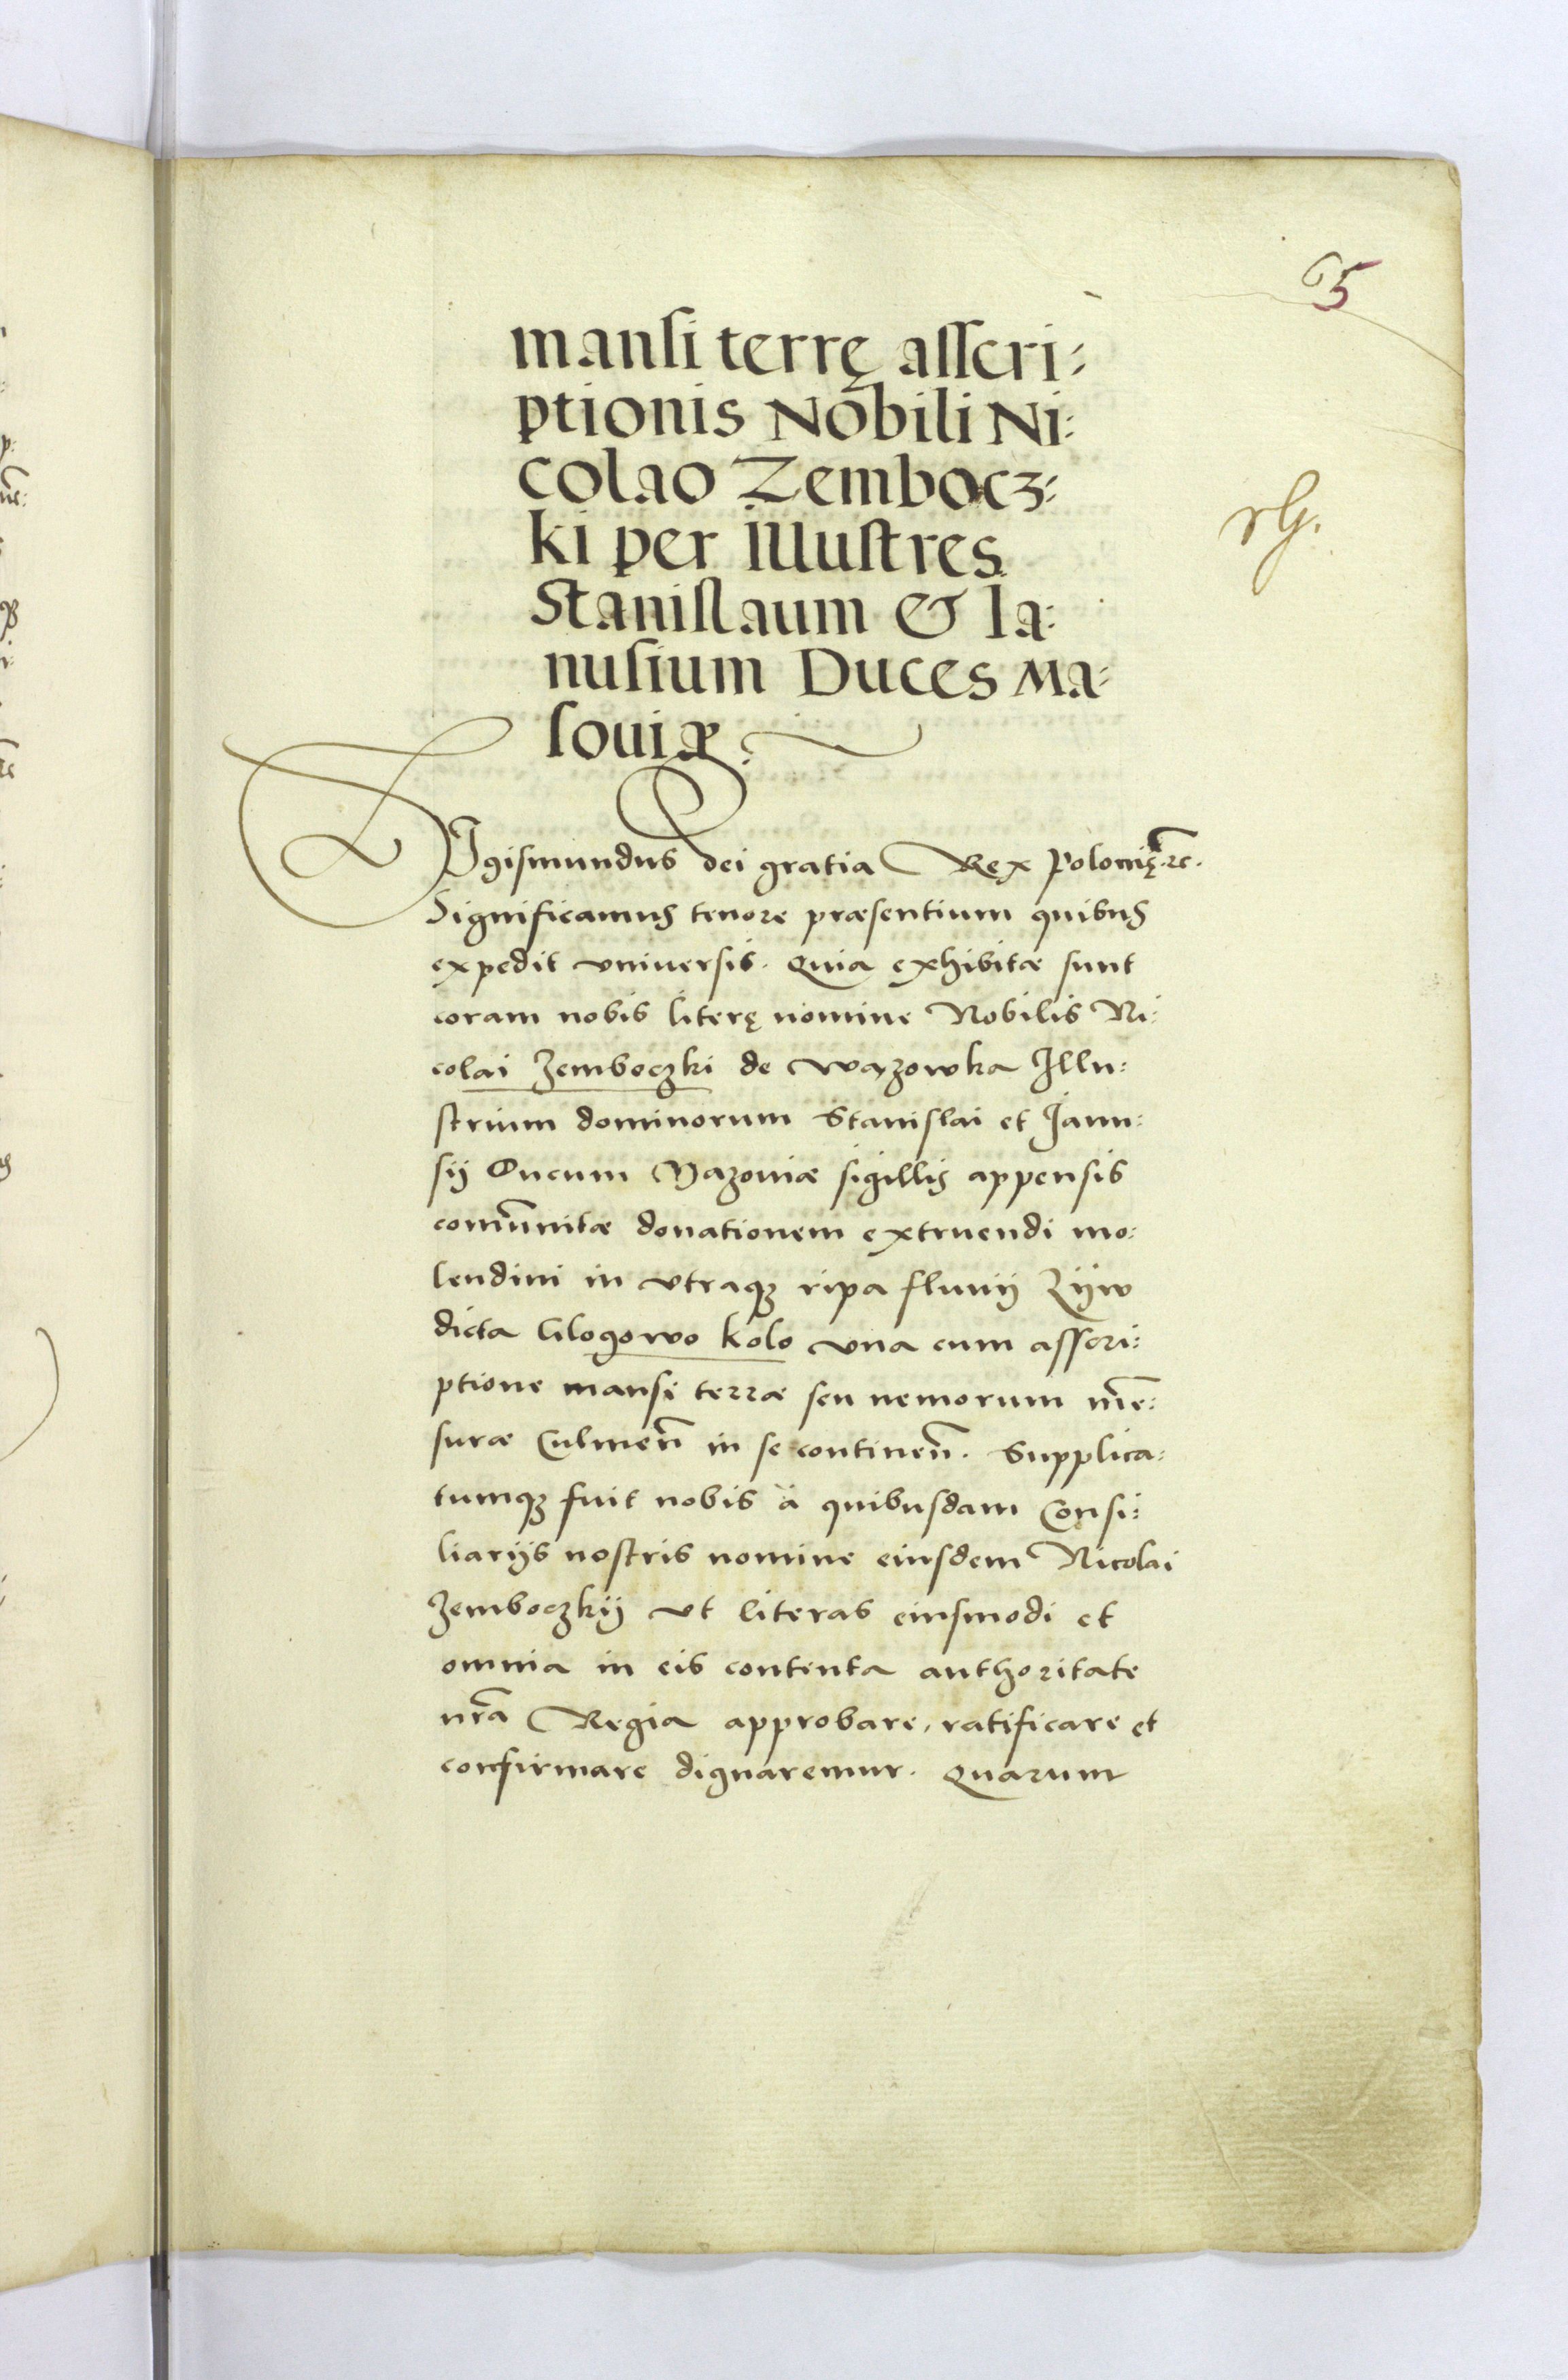 65
mansi terrę asscri:
ptionis Nobili Ni:
colao Zembocz:
ki per illustres
Stanislaum & Ia:
nusium Duces Ma:
souiæ.
SIgismundus dei gratia Rex Polonię. etc.
Significamus tenore præsentium quibus
expedit vniuersis. Quia exhibitæ sunt
coram nobis literę nomine Nobilis Ni:
colai Zemboczki de Wazowka Illu:
strium dominorum Stanislai et Janu:
sij Ducum Mazouiæ sigillis appensis
com̄unitæ donationem extruendi mo:
lendini in vtraqꝫ ripa fluuij Zÿw
dicta Glogowo kolo vna cum asscri:
ptione mansi terræ seu nemorum me͞:
suræ Culmen͞ in se continen͞. Supplica:
tumqꝫ fuit nobis à quibusdam Consi:
liarijs nostris nomine eiusdem Nicolai
Zemboczkij vt literas eiusmodi et
omnia in eis contenta authoritate
nr͞a Regia approbare, ratificare et
confirmare dignaremur. Quarum